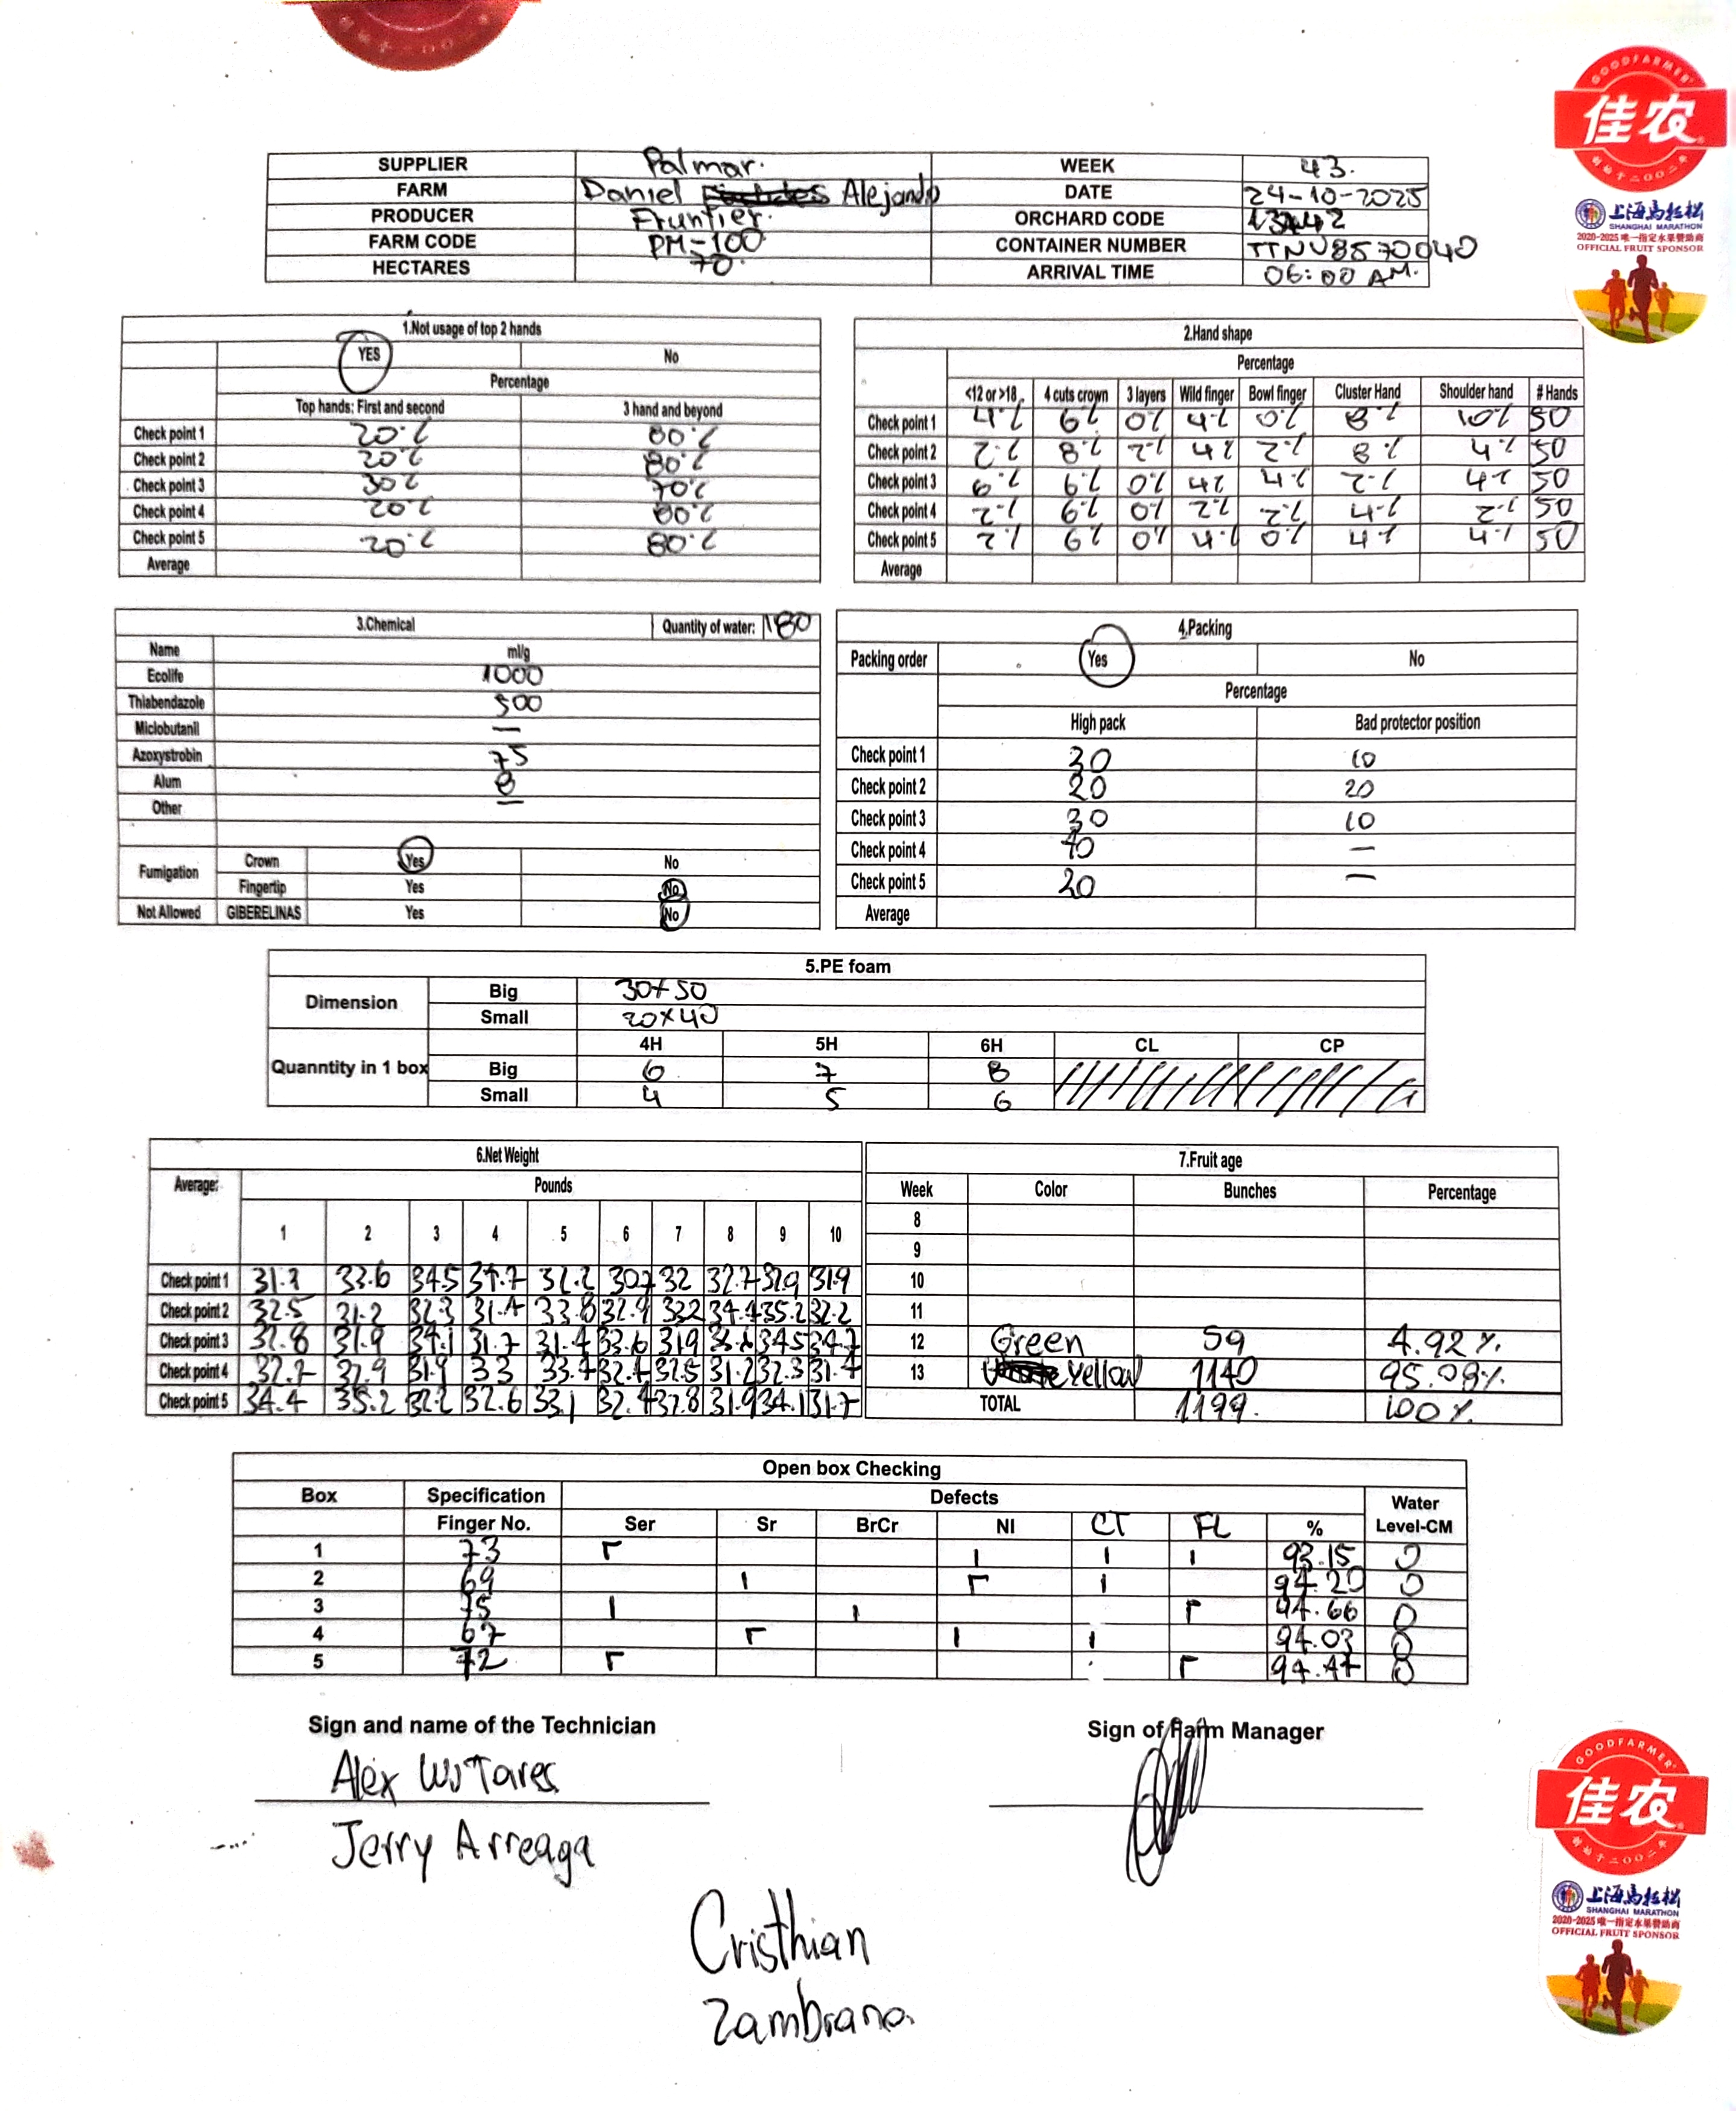 GOODFARMER
佳农
创始于二〇〇二年
上海马拉松
SHANGHAI MARATHON
2020-2025 唯一指定水果赞助商
OFFICIAL FRUIT SPONSOR
SUPPLIER Palmar. WEEK 43.
FARM Daniel Alejando DATE 24-10-2025
PRODUCER Fruntier. ORCHARD CODE
FARM CODE PM-100 CONTAINER NUMBER TTNU8570040
HECTARES 70. ARRIVAL TIME 06:00 AM.
1.Not usage of top 2 hands
YES No
Percentage
Top hands; First and second 3 hand and beyond
Check point 1 20.% 80.%
Check point 2 20.% 80.%
Check point 3 30% 70%
Check point 4 20.% 80.%
Check point 5 20.% 80.%
Average
2.Hand shape
Percentage
<12 or >18 4 cuts crown 3 layers Wild finger Bowl finger Cluster Hand Shoulder hand # Hands
Check point 1 4% 6% 0% 4% 0% 8% 10% 50
Check point 2 2% 8% 2% 4% 2% 8% 4% 50
Check point 3 6% 6% 0% 4% 4% 2% 4% 50
Check point 4 2% 6% 0% 2% 2% 4% 2% 50
Check point 5 2% 6% 0% 4% 0% 4% 4% 50
Average
3.Chemical Quantity of water: 180
Name ml/g
Ecolife 1000
Thiabendazole 500
Miclobutanil —
Azoxystrobin 75
Alum 8
Other —
Fumigation Crown Yes No
Fingertip Yes No
Not Allowed GIBERELINAS Yes No
4.Packing
Packing order Yes No
Percentage
High pack Bad protector position
Check point 1 30 10
Check point 2 20 20
Check point 3 30 10
Check point 4 40 —
Check point 5 20 —
Average
5.PE foam
Dimension Big 30x50
Small 20x40
4H 5H 6H CL CP
Quanntity in 1 box Big 6 7 8
Small 4 5 6
6.Net Weight
Average: Pounds
1 2 3 4 5 6 7 8 9 10
Check point 1 31.2 33.6 34.5 34.7 32.2 30.7 32 32.7 32.9 31.9
Check point 2 32.5 31.2 32.3 31.4 33.8 32.9 33.2 34.4 35.2 32.2
Check point 3 32.8 31.9 34.1 31.7 31.4 33.6 31.9 34.5 34.7
Check point 4 32.7 32.9 31.9 33 33.4 32.4 32.5 31.2 32.3 31.4
Check point 5 34.4 35.2 32.2 32.6 33.1 32.4 32.8 31.9 34.1 31.7
7.Fruit age
Week Color Bunches Percentage
8
9
10
11
12 Green 59 4.92%
13 Yellow 1140 95.08%
TOTAL 1199. 100%
Open box Checking
Box Specification Defects Water
Finger No. Ser Sr BrCr NI CT FL % Level-CM
1 73 Γ I I I 93.15 0
2 69 I Γ I 94.20 0
3 75 I I Γ 94.66 0
4 67 Γ I I 94.03 0
5 72 Γ Γ 94.44 0
Sign and name of the Technician Sign of Farm Manager
Alex
Jerry Arreaga
Cristhian
Zambrano.
GOODFARMER
佳农
创始于二〇〇二年
上海马拉松
SHANGHAI MARATHON
2020-2025 唯一指定水果赞助商
OFFICIAL FRUIT SPONSOR